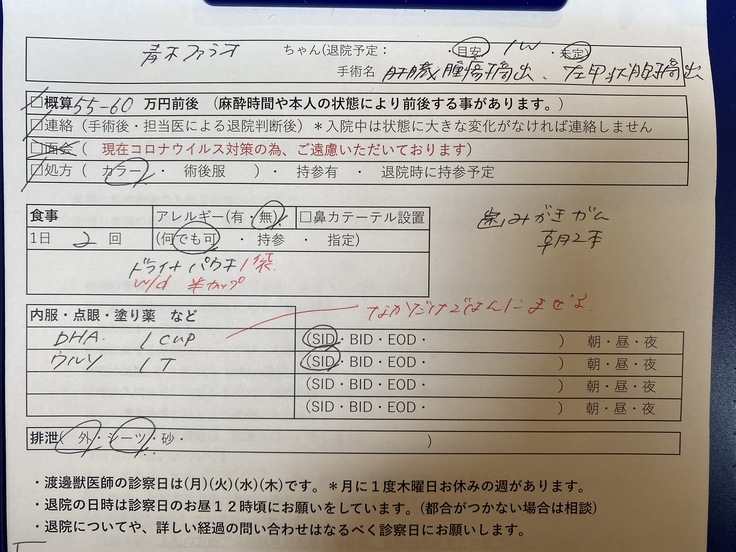 青木ファラオ ちゃん(退院予定: ・目安 1W ・未定)
手術名 肝臓腫瘍摘出、左甲状腺摘出
□概算 55-60 万円前後 (麻酔時間や本人の状態により前後する事があります。)
□連絡(手術後・担当医による退院判断後)＊入院中は状態に大きな変化がなければ連絡しません
□面会( 現在コロナウイルス対策の為、ご遠慮いただいております)
□処方( カラー ・ 術後服 )・ 持参有 ・ 退院時に持参予定
食事 アレルギー(有・無) □鼻カテーテル設置
1日 2 回 (何でも可 ・ 持参 ・ 指定)
歯みがきガム
朝2本
ドライナ パウチ1袋
w/d 半カップ
内服・点眼・塗り薬 など
なかだけごはんにまぜる
DHA. 1 cup (SID・BID・EOD・ ) 朝・昼・夜
ウルソ 1T (SID・BID・EOD・ ) 朝・昼・夜
(SID・BID・EOD・ ) 朝・昼・夜
(SID・BID・EOD・ ) 朝・昼・夜
排泄( 外・シーツ・砂・ )
・渡邊獣医師の診察日は(月)(火)(水)(木)です。＊月に１度木曜日お休みの週があります。
・退院の日時は診察日のお昼１２時頃にお願いをしています。(都合がつかない場合は相談)
・退院についてや、詳しい経過の問い合わせはなるべく診察日にお願いします。